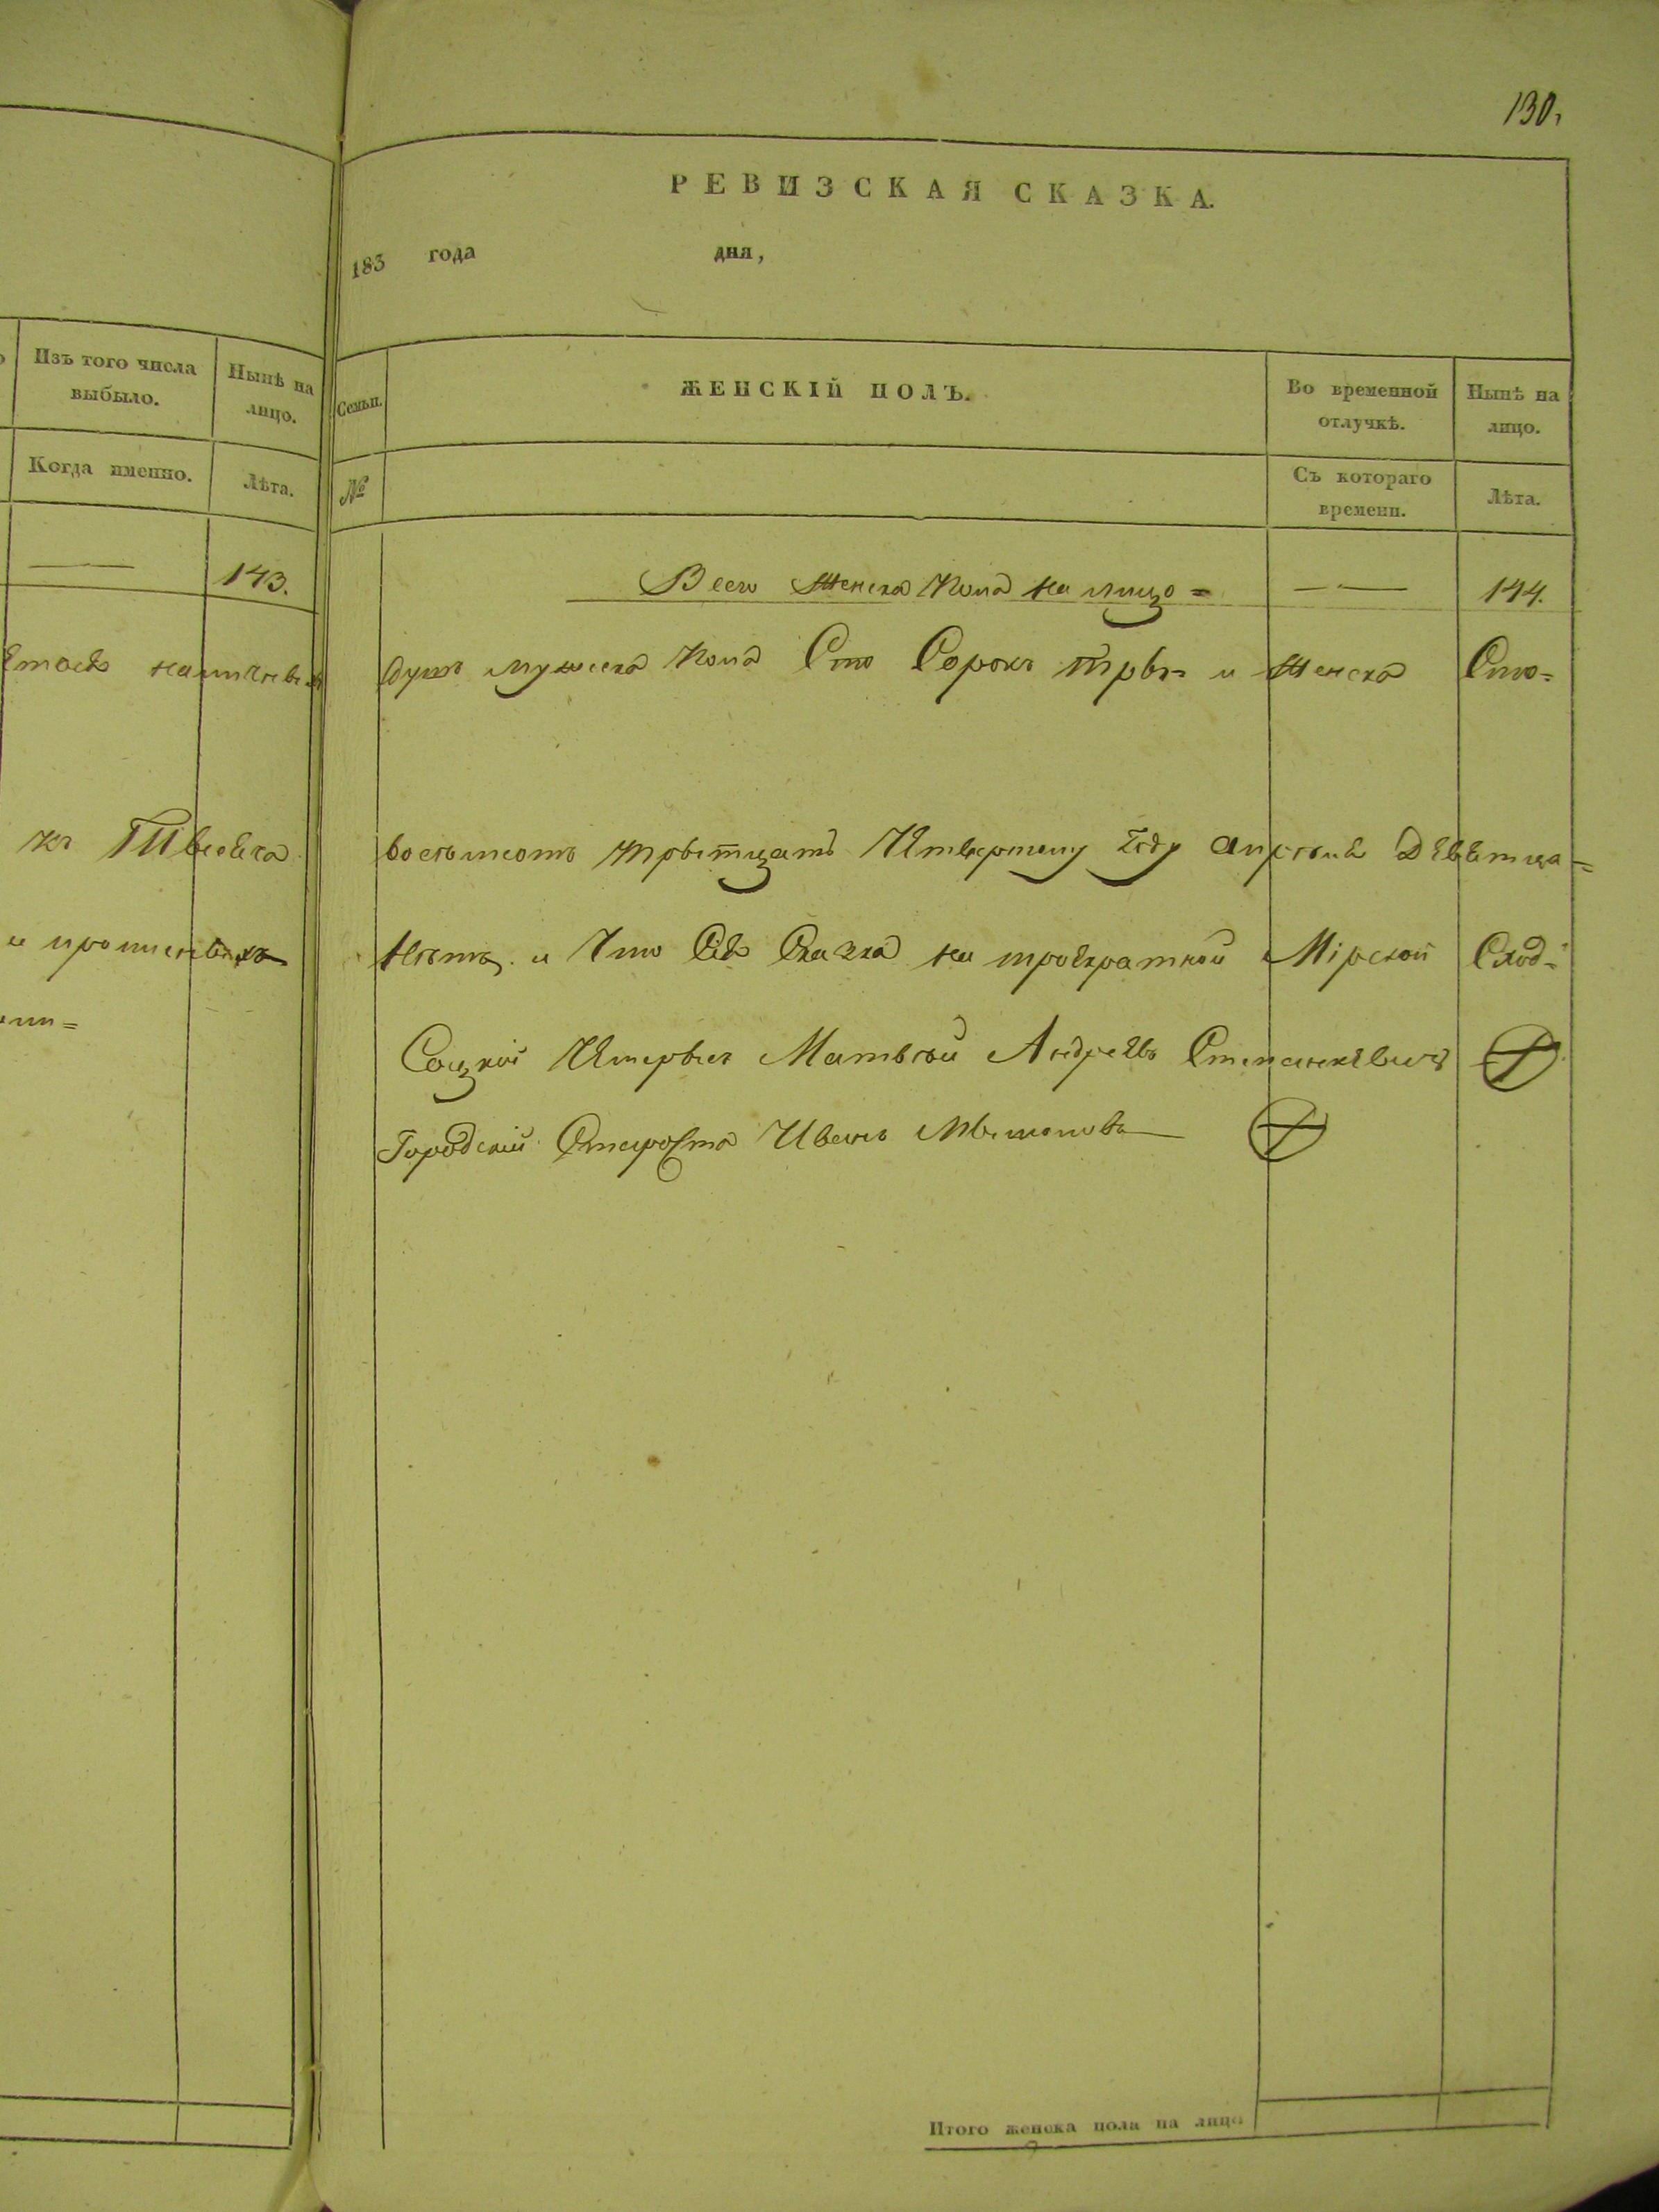 130.
РЕВИЗСКАЯ СКАЗКА.
183 года дня,
Изъ того числа выбыло.
Нынѣ на лицо.
Когда именно.
Лѣта.
143.
къ
и
Семьи.
ЖЕНСКІЙ ПОЛЪ.
Во временной отлучкѣ.
Нынѣ на лицо.
№
Съ котораго времени.
Лѣта.
Всего Женска Пола на лицо = 144.
душъ мужеска пола Сто Сорокъ три- и Женска Сто=
восемьсотъ тритцать Четвертому Году Апреля
и Что Сія Сказка на троекратной Мірской Сход=
Соцкой Матвей Андреевъ
Городский Староста Иванъ
Итого женска пола на лицо